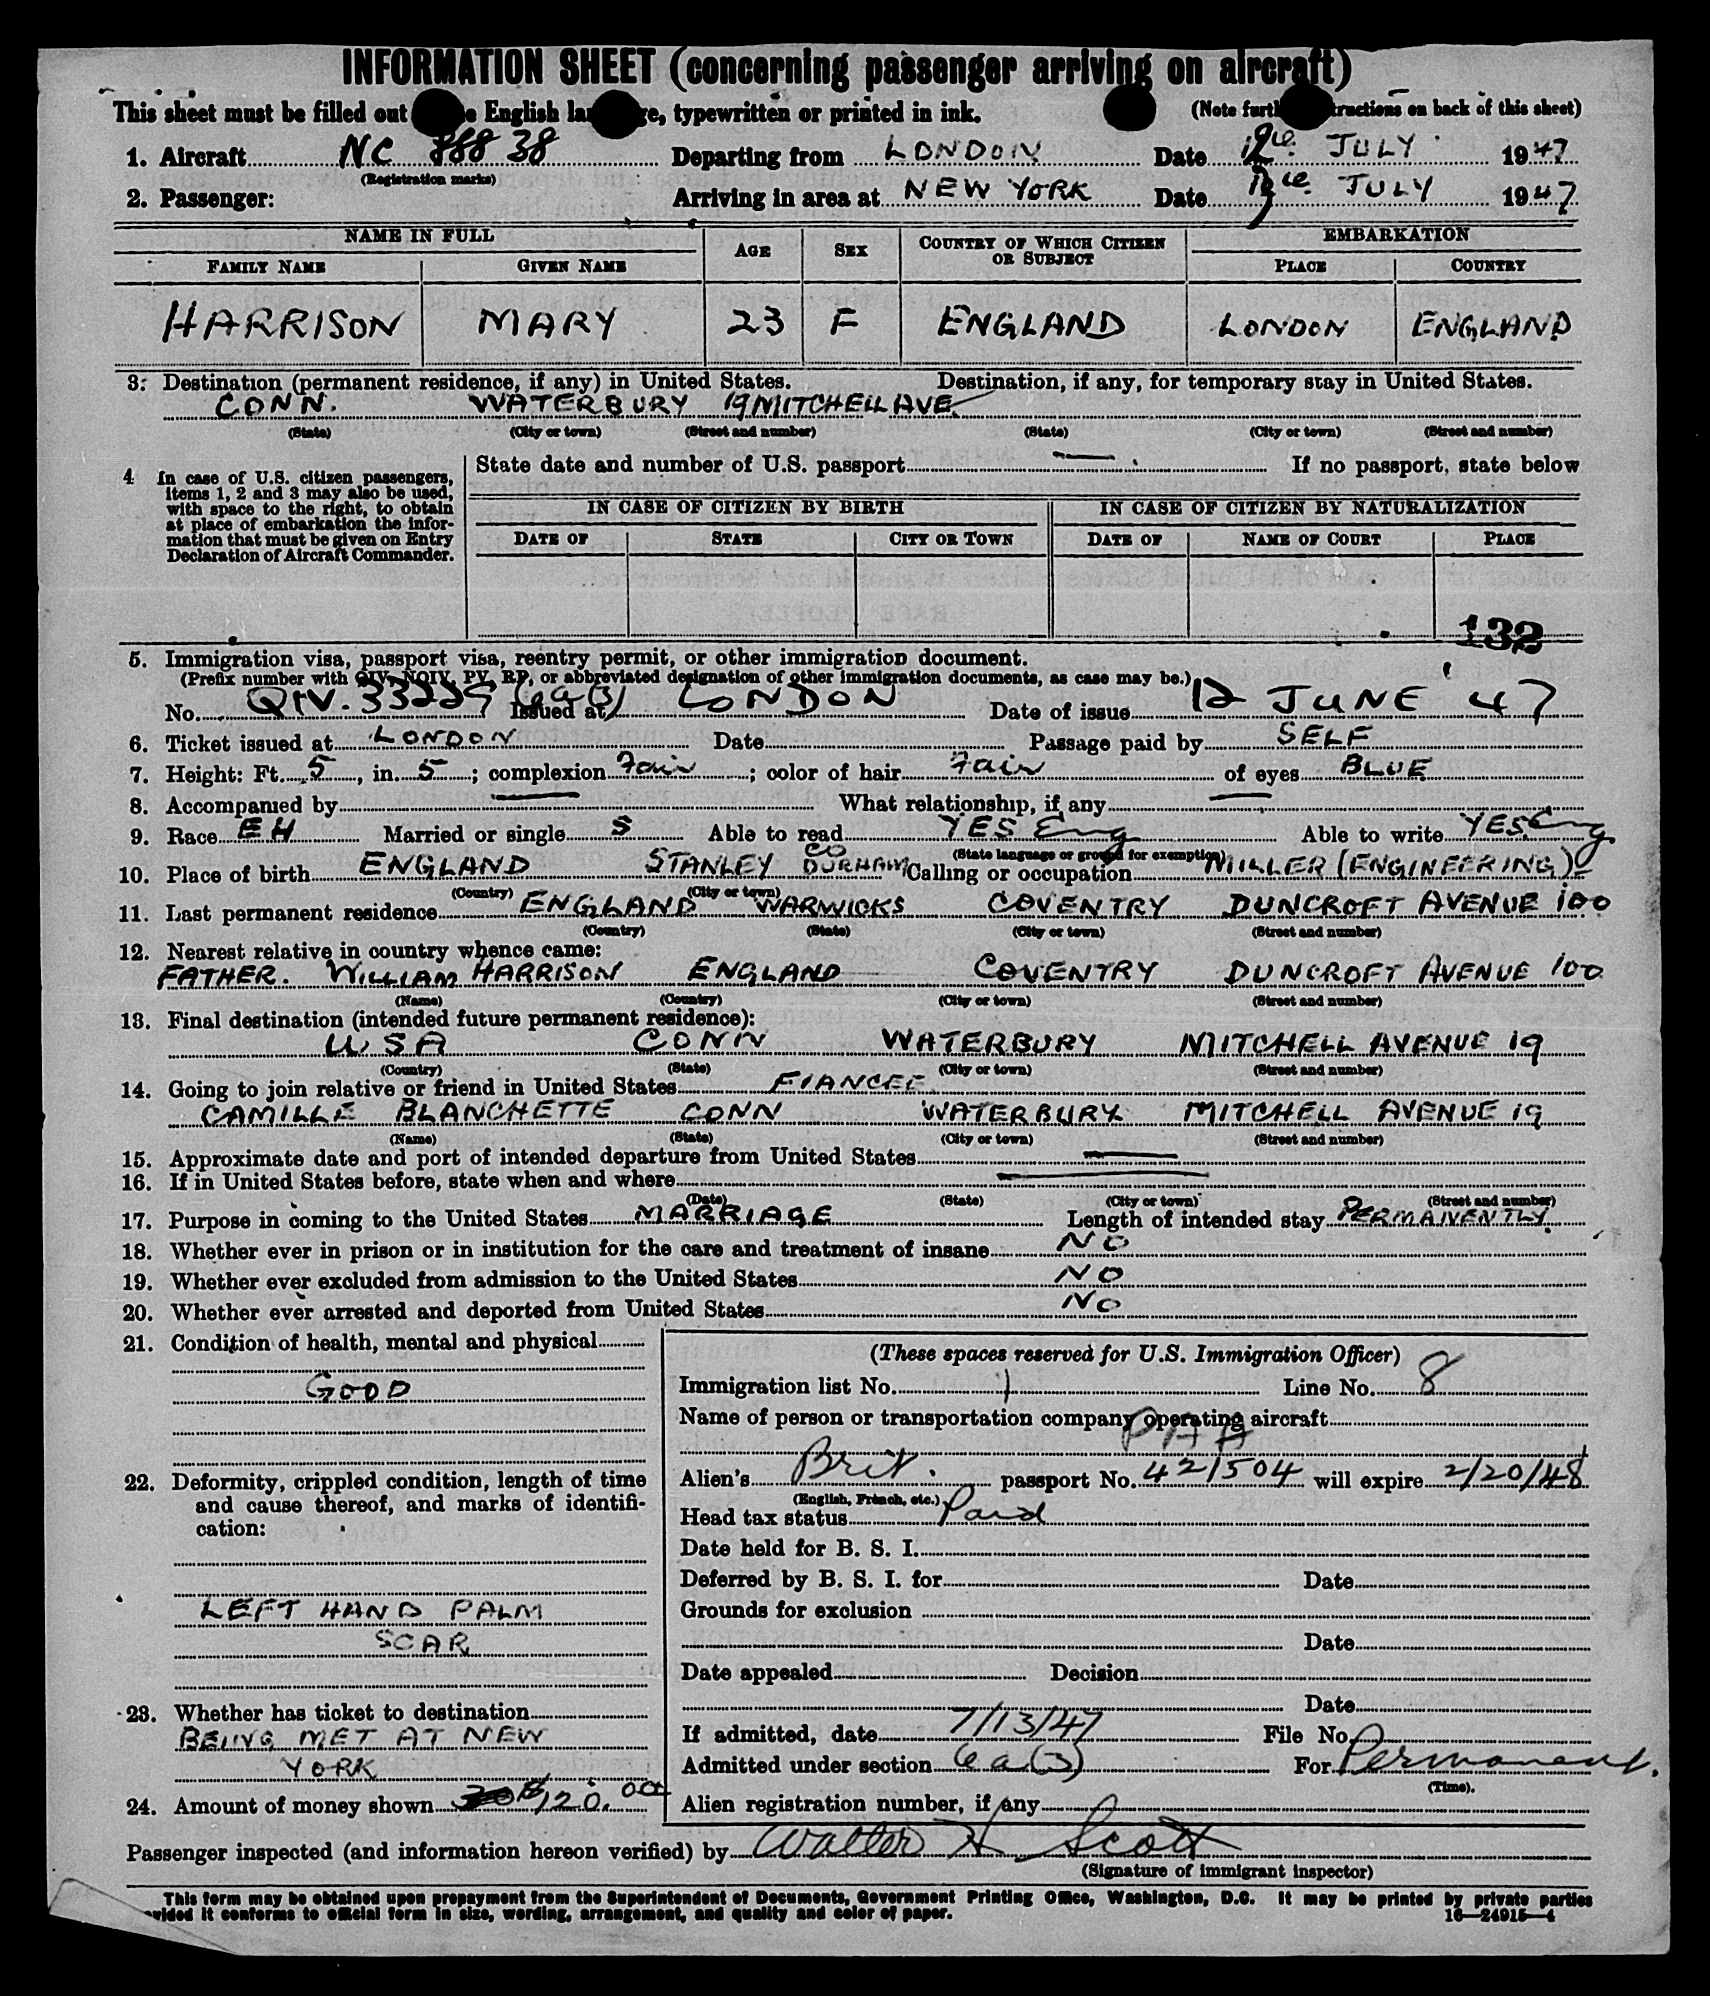 INFORMATION SHEET (concerning passenger arriving on aircraft)
This sheet must be filled out English, typewritten or printed in ink. (Note on back of this sheet)
1. Aircraft NC 88838 Departing from LONDON Date JULY 1947
(Registration marks)
2. Passenger: Arriving in area at NEW YORK Date JULY 1947
NAME IN FULL AGE SEX COUNTRY OF WHICH CITIZEN OR SUBJECT EMBARKATION
FAMILY NAME GIVEN NAME PLACE COUNTRY
HARRISON MARY 23 F ENGLAND LONDON ENGLAND
3. Destination (permanent residence, if any) in United States. Destination, if any, for temporary stay in United States.
CONN. WATERBURY 19 MITCHELL AVE.
(State) (City or town) (Street and number) (State) (City or town) (Street and number)
4 In case of U.S. citizen passengers, items 1, 2 and 3 may also be used, with space to the right, to obtain at place of embarkation the information that must be given on Entry Declaration of Aircraft Commander.
State date and number of U.S. passport — If no passport, state below
IN CASE OF CITIZEN BY BIRTH IN CASE OF CITIZEN BY NATURALIZATION
DATE OF STATE CITY OR TOWN DATE OF NAME OF COURT PLACE
132
5. Immigration visa, passport visa, reentry permit, or other immigration document.
(Prefix number with QIV, NQIV, PV, RP, or abbreviated designation of other immigration documents, as case may be.)
No. QIV. 33229 6a(3) Issued at LONDON Date of issue 12 JUNE 47
6. Ticket issued at LONDON Date Passage paid by SELF
7. Height: Ft. 5, in. 5; complexion Fair; color of hair Fair of eyes BLUE
8. Accompanied by — What relationship, if any —
9. Race EH Married or single S Able to read YES Eng Able to write YES Eng
(State language or ground for exemption)
10. Place of birth ENGLAND STANLEY CO DURHAM Calling or occupation MILLER (ENGINEERING)
(Country) (City or town)
11. Last permanent residence ENGLAND WARWICKS COVENTRY DUNCROFT AVENUE 100
(Country) (State) (City or town) (Street and number)
12. Nearest relative in country whence came:
FATHER. WILLIAM HARRISON ENGLAND COVENTRY DUNCROFT AVENUE 100
(Name) (Country) (City or town) (Street and number)
13. Final destination (intended future permanent residence):
USA CONN WATERBURY MITCHELL AVENUE 19
(Country) (State) (City or town) (Street and number)
14. Going to join relative or friend in United States FIANCEE
CAMILLE BLANCHETTE CONN WATERBURY MITCHELL AVENUE 19
(Name) (State) (City or town) (Street and number)
15. Approximate date and port of intended departure from United States —
16. If in United States before, state when and where —
(Date) (State) (City or town) (Street and number)
17. Purpose in coming to the United States MARRIAGE Length of intended stay PERMANENTLY.
18. Whether ever in prison or in institution for the care and treatment of insane NO
19. Whether ever excluded from admission to the United States NO
20. Whether ever arrested and deported from United States NO
21. Condition of health, mental and physical
GOOD
22. Deformity, crippled condition, length of time
and cause thereof, and marks of identifi-
cation:
LEFT HAND PALM
SCAR
23. Whether has ticket to destination
BEING MET AT NEW
YORK
24. Amount of money shown $120.00
(These spaces reserved for U.S. Immigration Officer)
Immigration list No. 1 Line No. 8
Name of person or transportation company operating aircraft
PAA
Alien's Brit. passport No. 421504 will expire 2/20/48
(English, French, etc.)
Head tax status Paid
Date held for B. S. I.
Deferred by B. S. I. for Date
Grounds for exclusion
Date
Date appealed Decision
Date
If admitted, date 7/13/47 File No.
Admitted under section 6a(3) For Permanent.
(Time).
Alien registration number, if any
Passenger inspected (and information hereon verified) by Walter H Scott
(Signature of immigrant inspector)
This form may be obtained upon prepayment from the Superintendent of Documents, Government Printing Office, Washington, D.C. It may be printed by private parties
it conforms to official form in size, wording, arrangement, and quality and color of paper. 16—24915—4